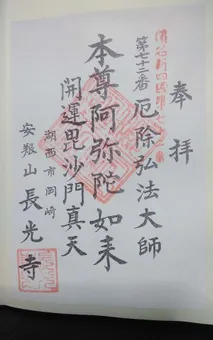 奉拝
第七十二番 厄除弘法大師
本尊阿弥陀如来
開運毘沙門真天
湖西市岡崎
安穏山 長光寺